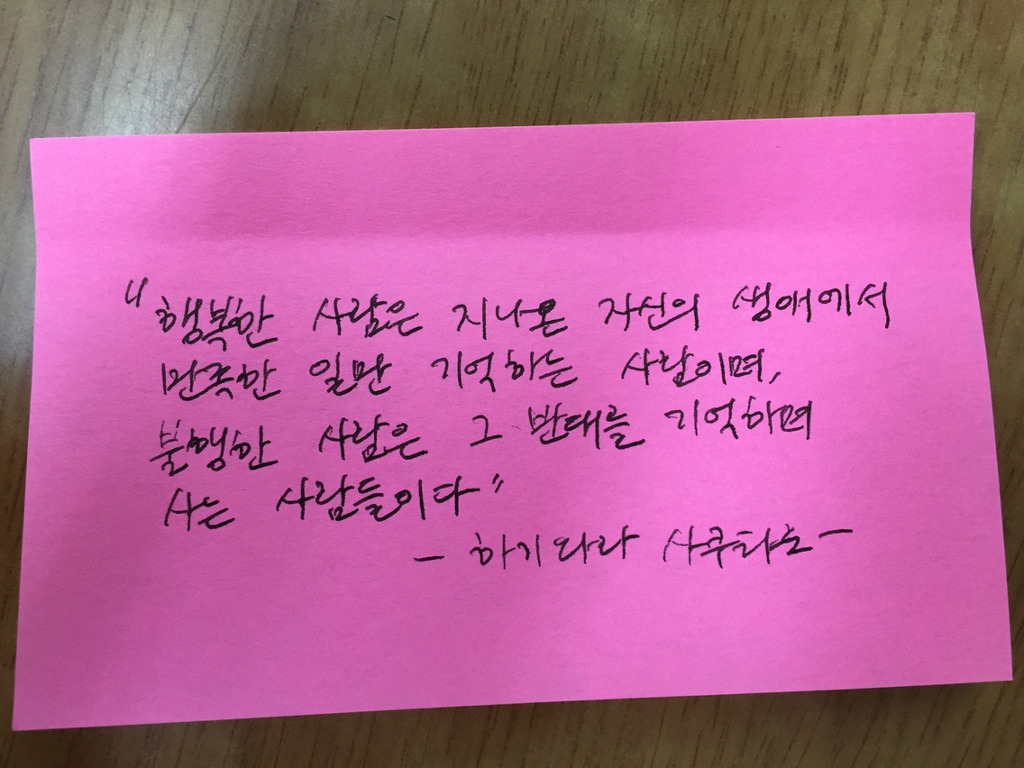 "행복한 사람은 지나온 자신의 생애에서
만족한 일만 기억하는 사람이며,
불행한 사람은 그 반대를 기억하며
사는 사람들이다"
- 하기와라 사쿠타로 -